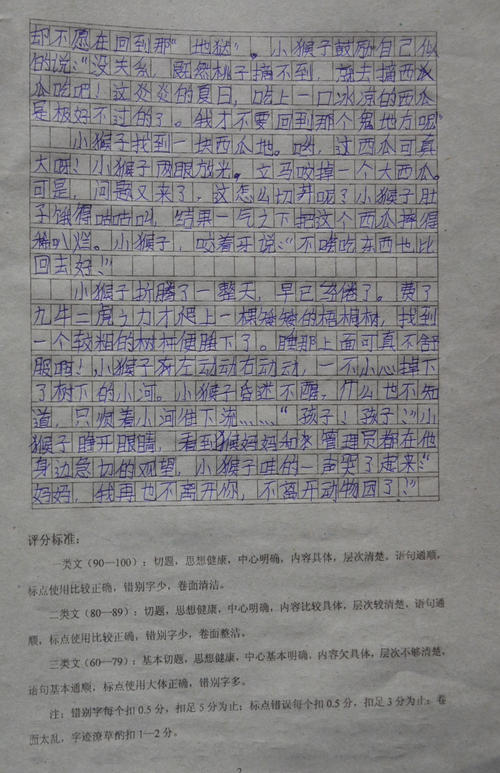 却不愿在回到那“地狱”。小猴子鼓励自己似
的说：“没关系，既然桃子摘不到，就去摘西瓜
瓜吃吧！这炎炎的夏日，吃上一口冰凉的西瓜
是极好不过的了。我才不要回到那个鬼地方呢”
小猴子找到一块西瓜地。哟，这西瓜可真
大呀！小猴子两眼放光。立马咬掉一个大西瓜。
可是，问题又来了，这怎么切开呢？小猴子肚
子饿得咕咕叫，结果一气之下把这个西瓜摔得
稀叭烂。小猴子，咬着牙说：“不啥吃东西也比
回去好！”
小猴子折腾了一整天，早已疲倦了。费了
九牛二虎之力才爬上一棵矮矮的梧桐树，找到
一个较粗的树杆便睡下了。睡那上面可真不舒
服啊！小猴子左动动右动动，一不小心掉下
了树下的小河。小猴子昏迷不醒，什么也不知
道，只顺着小河往下流……“孩子！孩子！”小
猴子睁开眼睛，看到猴妈妈和管理员都在他
身边急切的观望，小猴子哇的一声哭了起来“
妈妈，我再也不离开你，不离开动物园了！”
评分标准：
一类文（90—100）：切题，思想健康，中心明确，内容具体，层次清楚。语句通顺，
标点使用比较正确，错别字少，卷面清洁。
二类文（80—89）：切题，思想健康，中心明确，内容比较具体，层次较清楚，语句通
顺，标点使用比较正确，错别字少，卷面整洁。
三类文（60—79）：基本切题，思想健康，中心基本明确，内容欠具体，层次不够清楚，
语句基本通顺，标点使用大体正确，错别字多。
注：错别字每个扣0.5分，扣足5分为止；标点错误每个扣0.5分，扣足3分为止；卷
面太乱，字迹潦草酌扣1—2分。
2